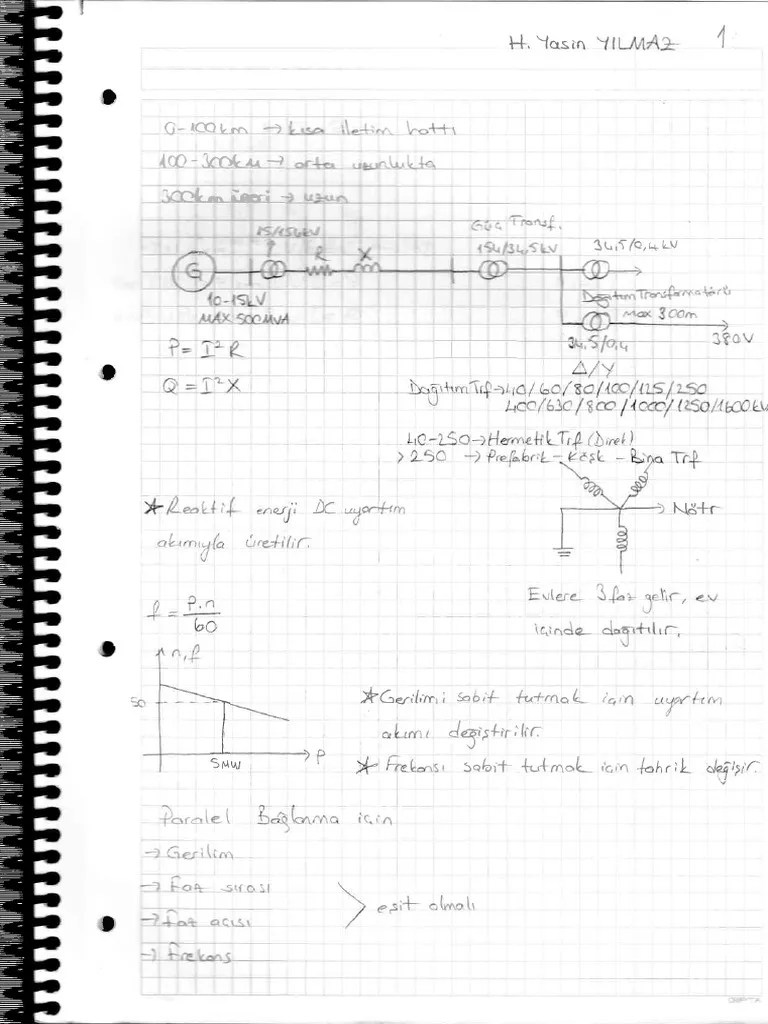 H. Yasin YILMAZ 1
0-100km → kısa iletim hattı
100-300km → orta uzunlukta
300km üzeri → uzun
15/154kV
R X
Güç Transf.
154/34,5kV
34,5/0,4kV
G
10-15kV
MAX 500MVA
Dağıtım Transformatörü
Max 300m
380V
34,5/0,4
Δ/Y
P = I²R
Q = I²X
Dağıtım Trf → 40/60/80/100/125/250
400/630/800/1000/1250/1600kV
40-250 → Hermetik Trf (Direk)
>250 → Prefabrik - Köşk - Bina Trf
Nötr
* Reaktif enerji DC uyartım
akımıyla üretilir.
Evlere 3 faz gelir, ev
içinde dağıtılır.
f = P.n
60
n,f
50
5MW
P
* Gerilimi sabit tutmak için uyartım
akımı değiştirilir.
* Frekansı sabit tutmak için tahrik değişir.
Paralel Bağlanma için
→ Gerilim
→ Faz sırası
→ Faz açısı
→ Frekans
eşit olmalı